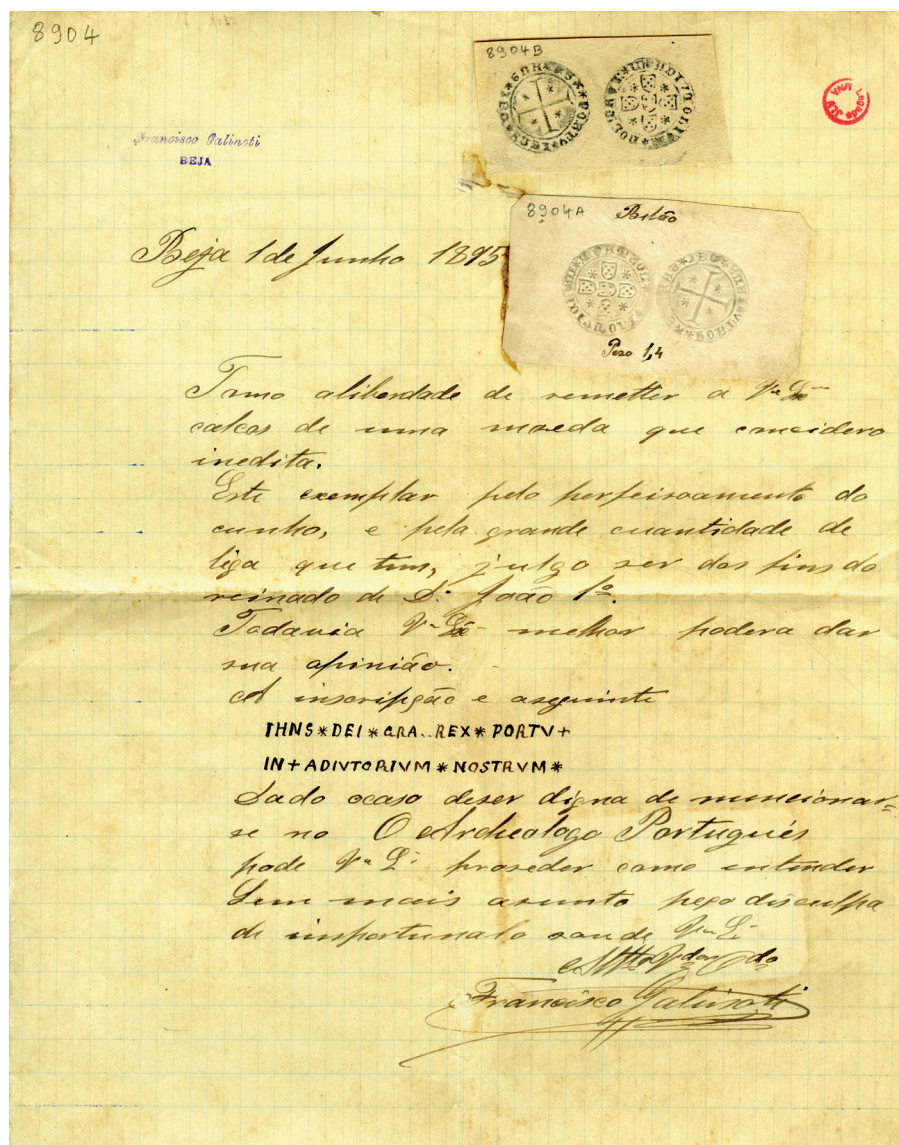 8904
8904B
Francisco Galinoti
BEJA
8904A Bilão
Beja 1 de Junho 1895
Pezo 1,4
Tomo aliberdade de remetter a Vª Exª
calcos de uma moeda que concidero
inedita.
Este exemplar pelo perfeisoamento do
cunho, e pela grande cuantidade de
liga que tem, julgo ser dos fins do
reinado de D. João 1º.
Todavia Vª Exª melhor podera dar
sua apinião.
A inscripção e aseguinte
IHNS*DEI*GRA..REX*PORTV+
IN+ADIVTORIVM*NOSTRVM*
Dado ocaso deser digna de muncionar-
se no O Archeologo Português
pode Vª Eª proseder como intender
Sem mais asunto peço disculpa
de importunalo sou de Vª Eª
Francisco Galinoti